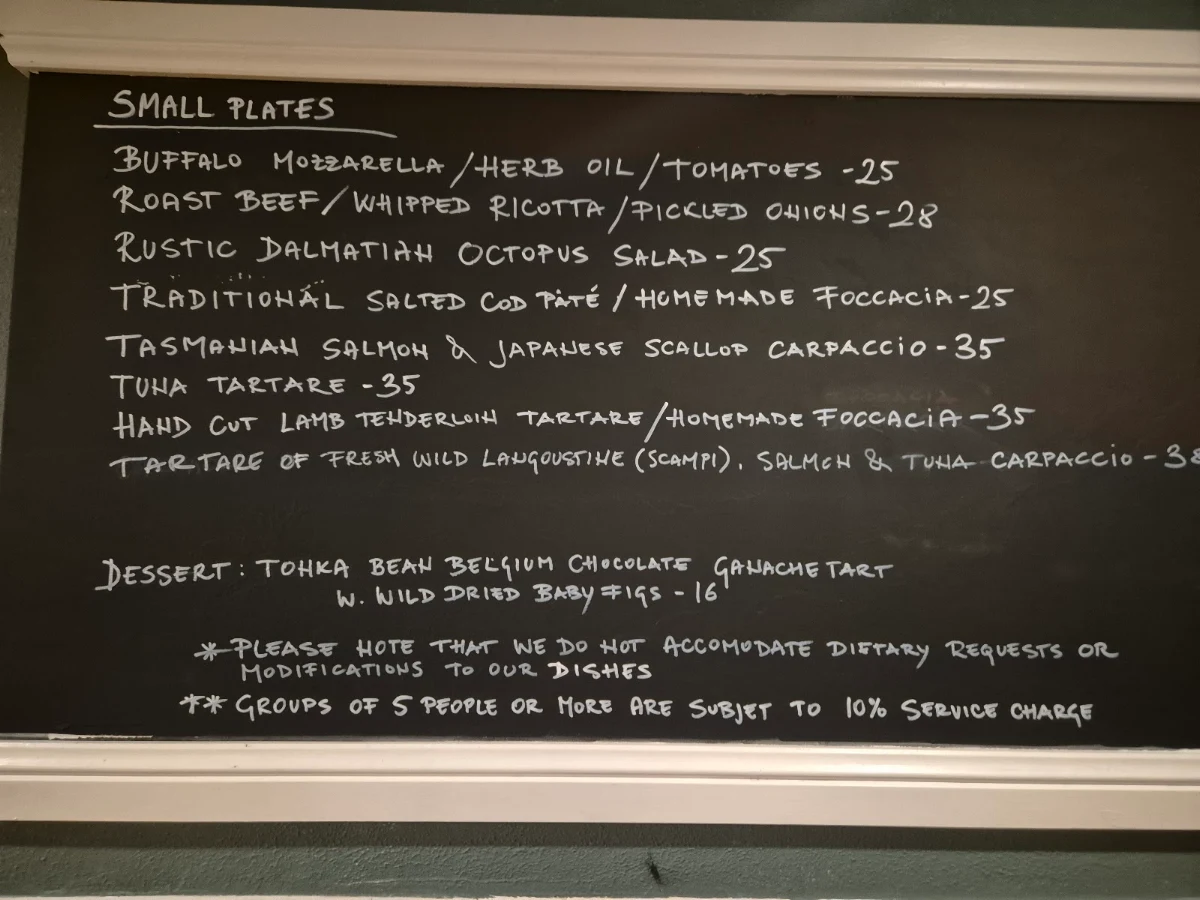 SMALL PLATES
BUFFALO MOZZARELLA / HERB OIL / TOMATOES - 25
ROAST BEEF / WHIPPED RICOTTA / PICKLED ONIONS - 28
RUSTIC DALMATIAN OCTOPUS SALAD - 25
TRADITIONAL SALTED COD PÂTÉ / HOMEMADE FOCCACIA - 25
TASMANIAN SALMON & JAPANESE SCALLOP CARPACCIO - 35
TUNA TARTARE - 35
HAND CUT LAMB TENDERLOIN TARTARE / HOMEMADE FOCCACIA - 35
TARTARE OF FRESH WILD LANGOUSTINE (SCAMPI), SALMON & TUNA CARPACCIO - 38
DESSERT: TONKA BEAN BELGIUM CHOCOLATE GANACHE TART
W. WILD DRIED BABY FIGS - 16
* PLEASE NOTE THAT WE DO NOT ACCOMODATE DIETARY REQUESTS OR
MODIFICATIONS TO OUR DISHES
** GROUPS OF 5 PEOPLE OR MORE ARE SUBJET TO 10% SERVICE CHARGE